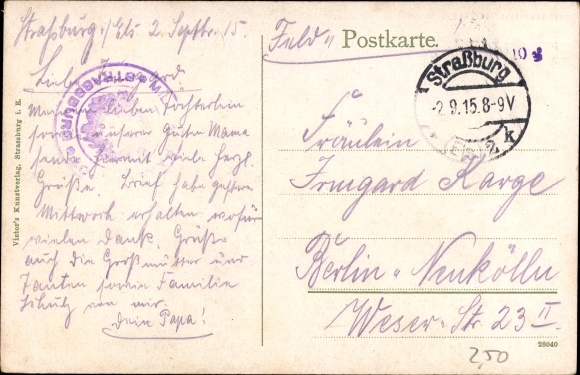 Straßburg i/Els 2. Septbr. 15.
Liebe Irmgard!
Meinem lieben Töchterlein
sowie unserer Guten Mama
sende hiermit viele herzl.
Grüße. Brief habe gestern
Mittwoch erhalten wofür
vielen Dank. Grüße
auch die Großmütter und
Tanten sowie Familie
Schulz von mir.
Dein Papa!
Victor's Kunstverlag, Strassburg i. E.
STRASSBURG
"Feld"
Postkarte.
Straßburg
-2.9.15.8-9V
k
Fräulein
Irmgard Karge
Berlin-Neukölln
Weser-Str. 23 II
28040
2,50